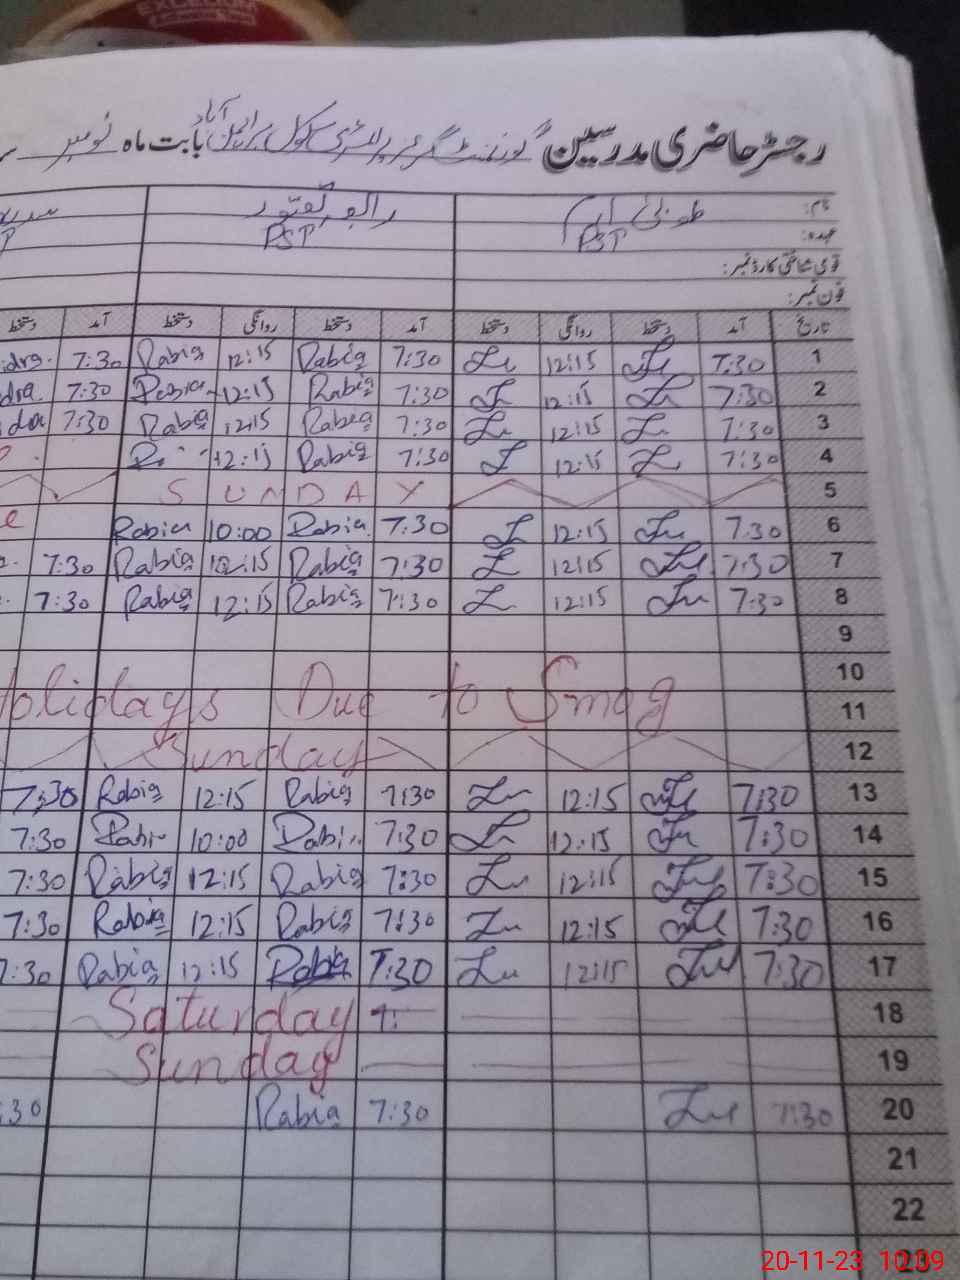 EXCELLENT
رجسٹر حاضری مدرسین گورنمنٹ گرلز پرائمری سکول آباد بابت ماہ نومبر
نام: طوبیٰ ارم رابعہ
عہدہ: PST PST
قومی شناختی کارڈ نمبر:
فون نمبر:
تاریخ آمد دستخط روانگی دستخط آمد دستخط روانگی دستخط آمد دستخط
7:30 Rabia 12:15 Rabia 7:30 12:15 7:30 1
7:30 Rabia 12:15 Rabia 7:30 12:15 7:30 2
7:30 Rabia 12:15 Rabia 7:30 12:15 7:30 3
12:15 Rabia 7:30 12:15 7:30 4
SUNDAY 5
Rabia 10:00 Rabia 7:30 12:15 7:30 6
7:30 Rabia 12:15 Rabia 7:30 12:15 7:30 7
7:30 Rabia 12:15 Rabia 7:30 12:15 7:30 8
9
10
Holidays Due to Smog 11
Sunday 12
7:30 Rabia 12:15 Rabia 7:30 12:15 7:30 13
7:30 Rabia 10:00 Rabia 7:30 12:15 7:30 14
7:30 Rabia 12:15 Rabia 7:30 12:15 7:30 15
7:30 Rabia 12:15 Rabia 7:30 12:15 7:30 16
7:30 Rabia 12:15 Rabia 7:30 12:15 7:30 17
Saturday 18
Sunday 19
:30 Rabia 7:30 7:30 20
21
22
23
20-11-23 10:09